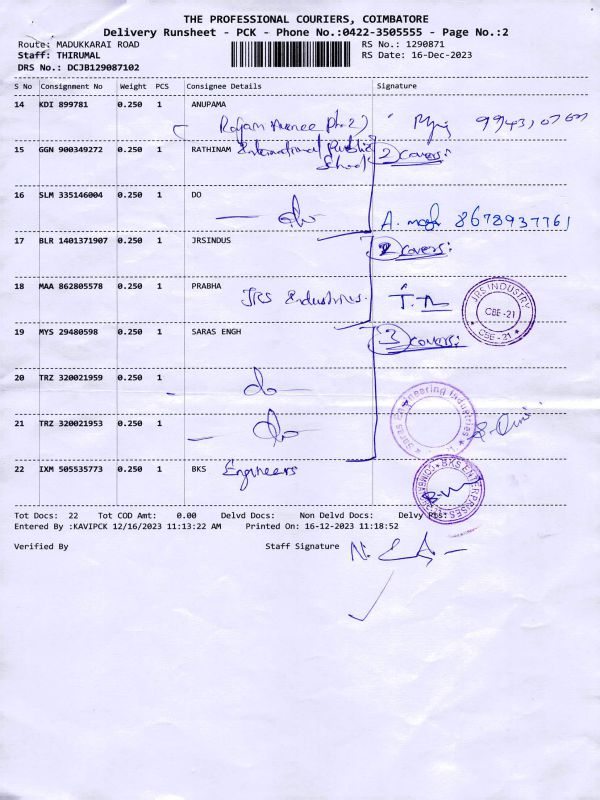 THE PROFESSIONAL COURIERS, COIMBATORE
Delivery Runsheet - PCK - Phone No.:0422-3505555 - Page No.:2
Route: MADUKKARAI ROAD RS No.: 1290871
Staff: THIRUMAL RS Date: 16-Dec-2023
DRS No.: DCJB129087102
S No Consignment No Weight PCS Consignee Details Signature
14 KDI 899781 0.250 1 ANUPAMA
15 GGN 900349272 0.250 1 RATHINAM International Public
School 2 covers:
16 SLM 335146004 0.250 1 DO
do A. 8678937761
17 BLR 1401371907 0.250 1 JRSINDUS 2 covers:
18 MAA 862805578 0.250 1 PRABHA
JRS Industries. JRS INDUSTRY CBE-21 CBE-21
19 MYS 29480598 0.250 1 SARAS ENGH 3 covers:
20 TRZ 320021959 0.250 1 do
21 TRZ 320021953 0.250 1 do Saras Engineering Industries
22 IXM 505535773 0.250 1 BKS Engineers BKS ENTERPRISES
Tot Docs: 22 Tot COD Amt: 0.00 Delvd Docs: Non Delvd Docs: Delvy Pts:
Entered By :KAVIPCK 12/16/2023 11:13:22 AM Printed On: 16-12-2023 11:18:52
Verified By Staff Signature